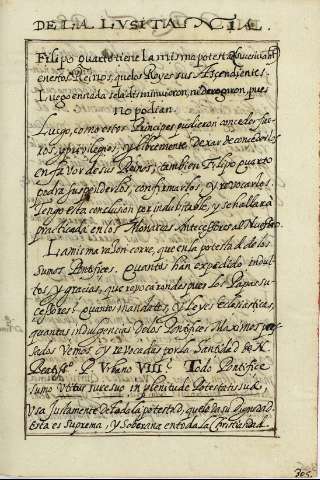 DE LA LUSITANIA
Filipo quarto tiene la misma potestad
en estos Reinos, que los Reyes sus Ascendientes.
Luego en nada se la diminuieron, ni derogaron, pues
no podian.
Luego, como estos Principes pudieron conceder
y privilegios, y libremente dexar de concederlos
en favor de sus Reinos; tambien Filipo quarto
podra suspenderlos, confirmarlos, y revocarlos.
Tengo esta conclusion por indubitable, y se hallara
practicada en los Monarcas Antecessores al Nuestro.
La misma razon corre, que en la potestad de los
Sumos Pontifices. Quantos han expedido indul-
tos, y gracias, que revocaron despues los Papas su-
cessores? quantos mandatos, y Leyes Eclesiasticas,
quantas indulgencias de los Pontifices Maximos
vemos revocadas por la Santidad de N.
P. Urbano VIII. Todo Pontifice
sumo in plenitude Potestatis suæ,
Usa justamente de toda la potestad, que le da su Dignidad.
Esta es Suprema, y Soberana en toda la Christiandad.
305.